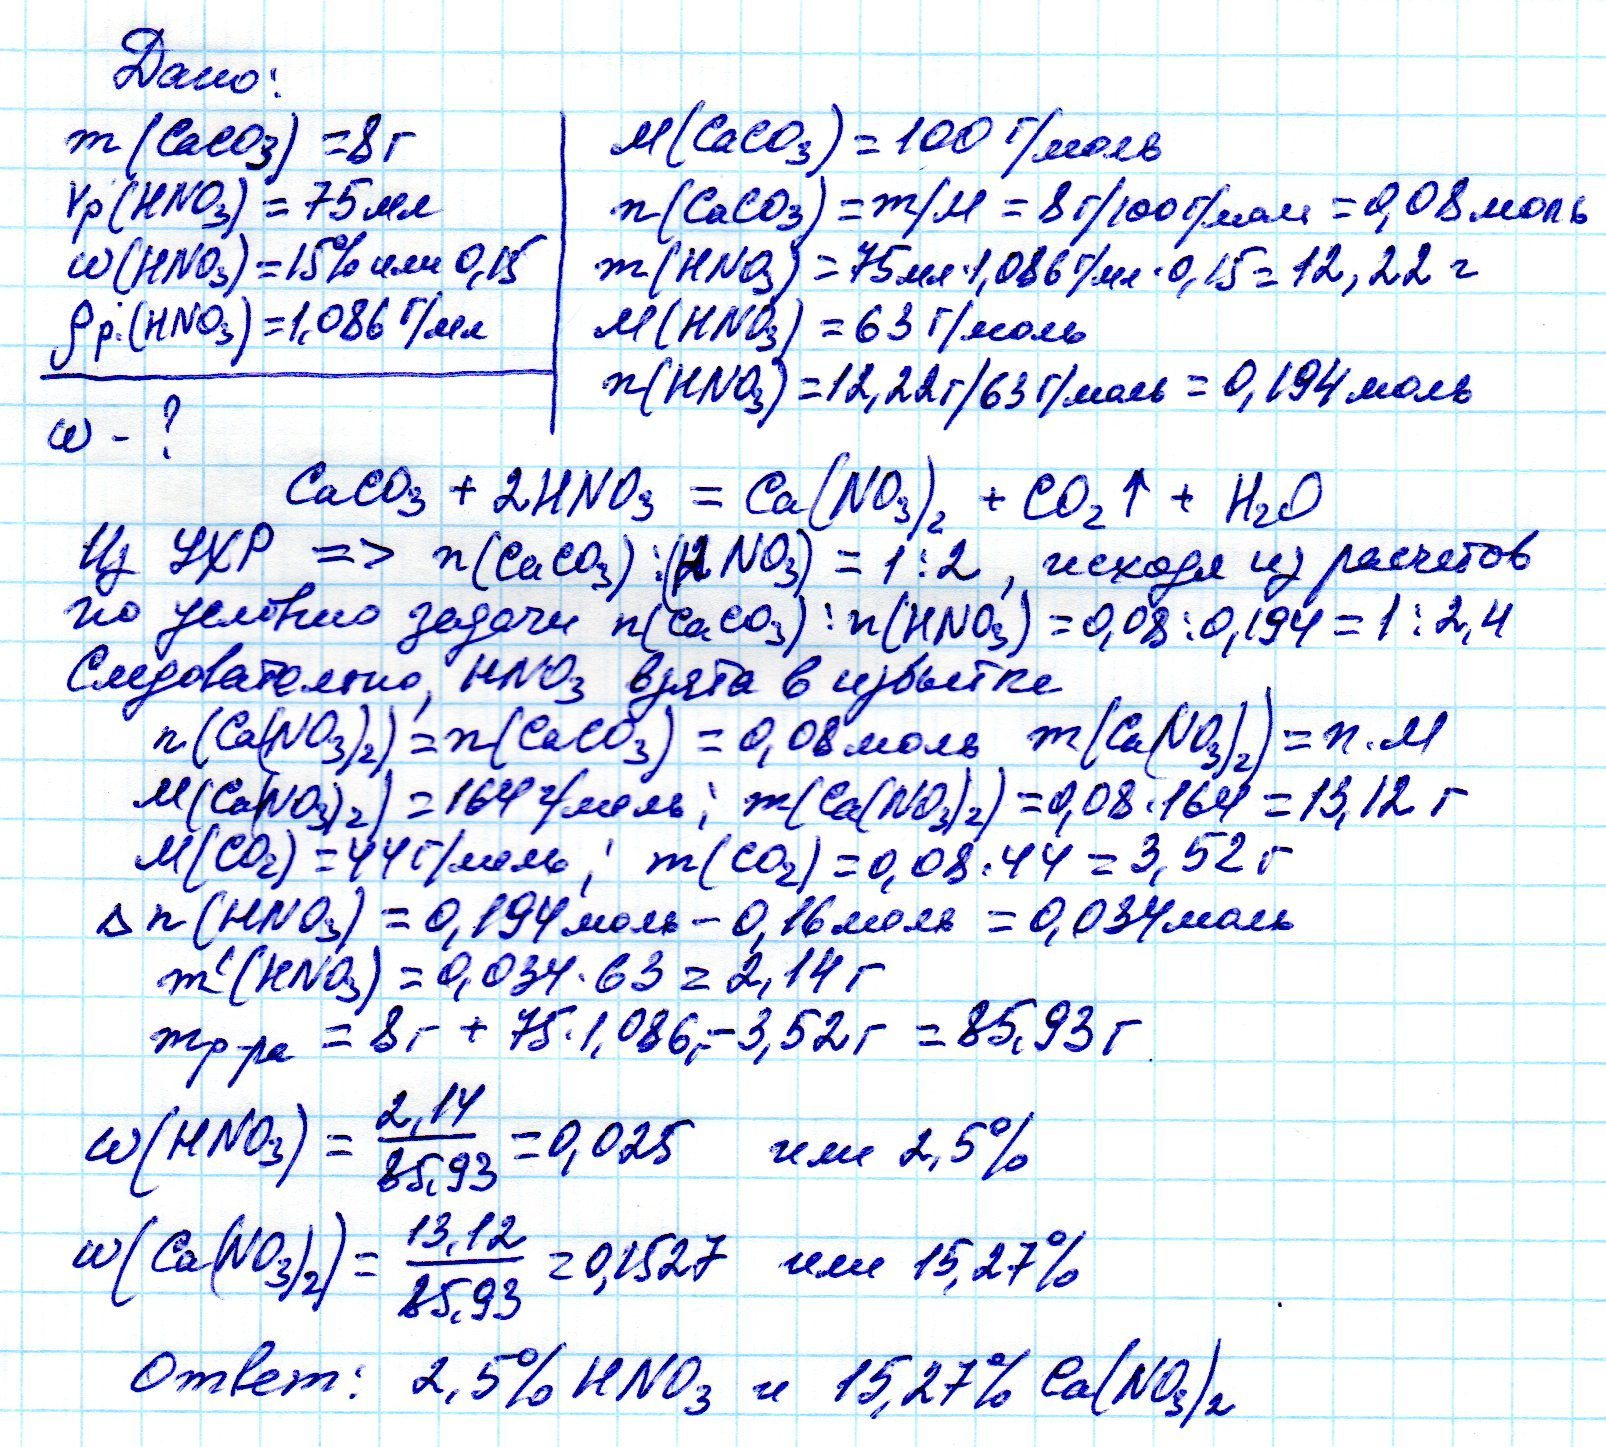 Дано:
m(CaCO₃) = 8 г
Vр.(HNO₃) = 75 мл
ω(HNO₃) = 15% или 0,15
ρр.(HNO₃) = 1,086 г/мл
ω - ?
M(CaCO₃) = 100 г/моль
n(CaCO₃) = m/M = 8 г/100 г/моль = 0,08 моль
m(HNO₃) = 75 мл·1,086 г/мл·0,15 = 12,22 г
M(HNO₃) = 63 г/моль
n(HNO₃) = 12,22 г/63 г/моль = 0,194 моль
CaCO₃ + 2HNO₃ = Ca(NO₃)₂ + CO₂↑ + H₂O
Из УХР => n(CaCO₃):(HNO₃) = 1:2, исходя из расчетов
по условию задачи n(CaCO₃):n(HNO₃) = 0,08:0,194 = 1:2,4
Следовательно, HNO₃ взята в избытке
n(Ca(NO₃)₂) = n(CaCO₃) = 0,08 моль m(Ca(NO₃)₂) = n·M
M(Ca(NO₃)₂) = 164 г/моль; m(Ca(NO₃)₂) = 0,08·164 = 13,12 г
M(CO₂) = 44 г/моль; m(CO₂) = 0,08·44 = 3,52 г
Δn(HNO₃) = 0,194 моль - 0,16 моль = 0,034 моль
m'(HNO₃) = 0,034·63 = 2,14 г
mр-ра = 8 г + 75·1,086 - 3,52 г = 85,93 г
ω(HNO₃) = 2,14/85,93 = 0,025 или 2,5%
ω(Ca(NO₃)₂) = 13,12/85,93 = 0,1527 или 15,27%
Ответ: 2,5% HNO₃ и 15,27% Ca(NO₃)₂